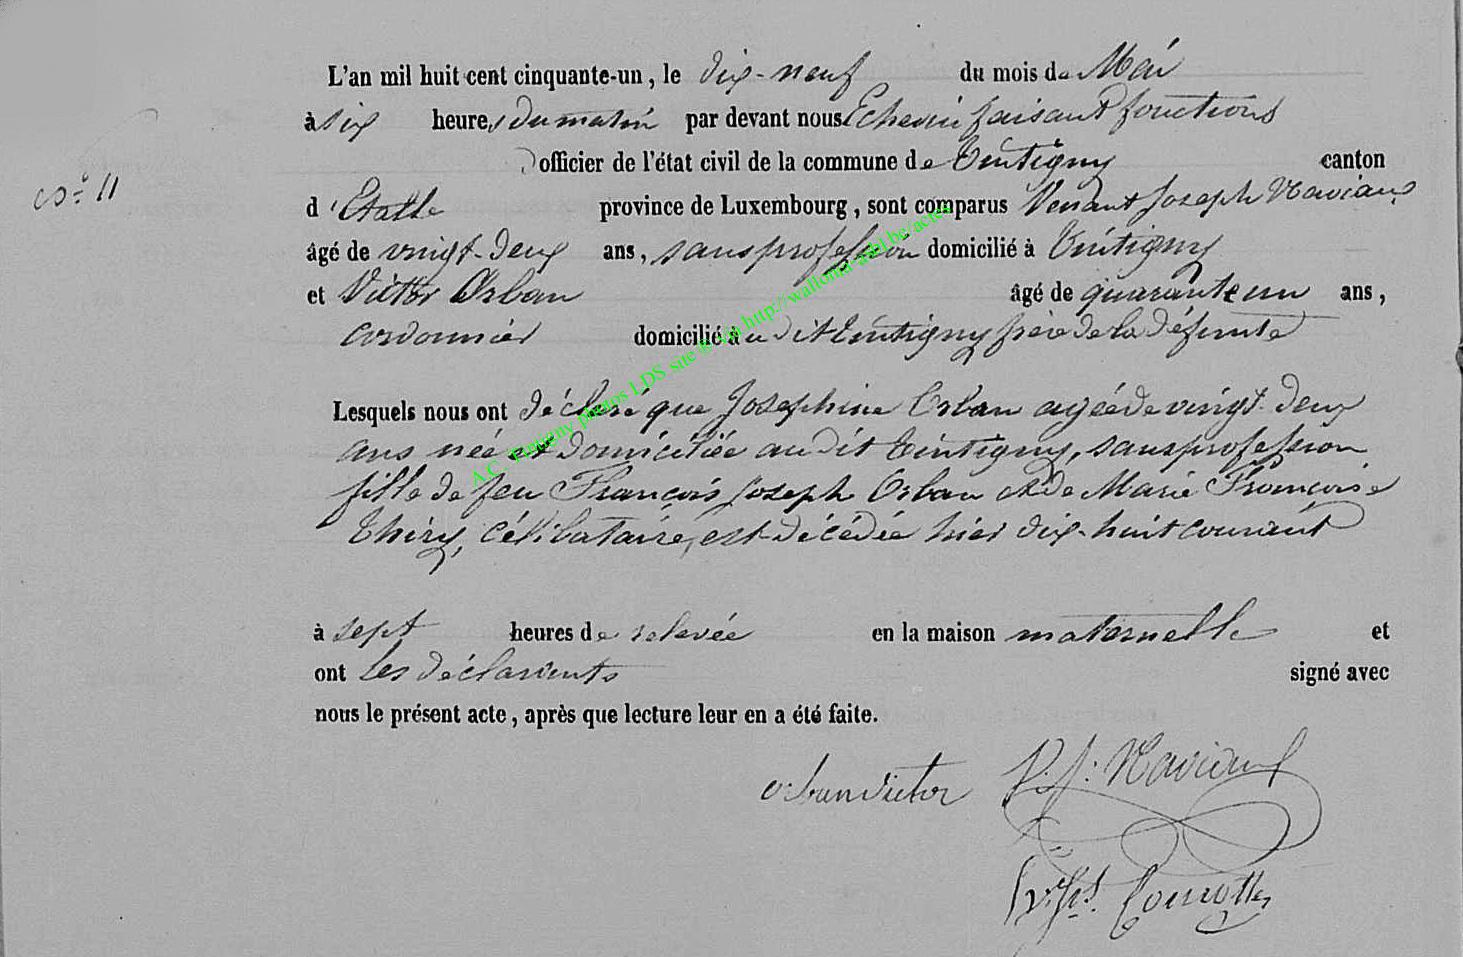 L'an mil huit cent cinquante-un, le dix-neuf du mois de Mai
à six heures du matin par devant nous Echevin faisant fonctions
d'officier de l'état civil de la commune de Tintigny canton
N° 11
d'Etalle province de Luxembourg, sont comparus Venant Joseph
âgé de vingt-deux ans, sans profession domicilié à Tintigny
et Victor Orban âgé de quarante un ans,
cordonnier domicilié à u dit Tintigny frère de la défunte
Lesquels nous ont déclaré que Josephine Orban agée de vingt-deux
ans née et domiciliée au dit Tintigny, sans profession
fille de feu François Joseph Orban et de Marie Françoise
Thiry, célibataire, est décédée hier dix-huit courant
à sept heures de relevée en la maison maternelle et
ont les déclarants signé avec
nous le présent acte, après que lecture leur en a été faite.
orban victor V. J.
A.C. Tintigny photos LDS site ® via http://wallonia-asbl.be/actes